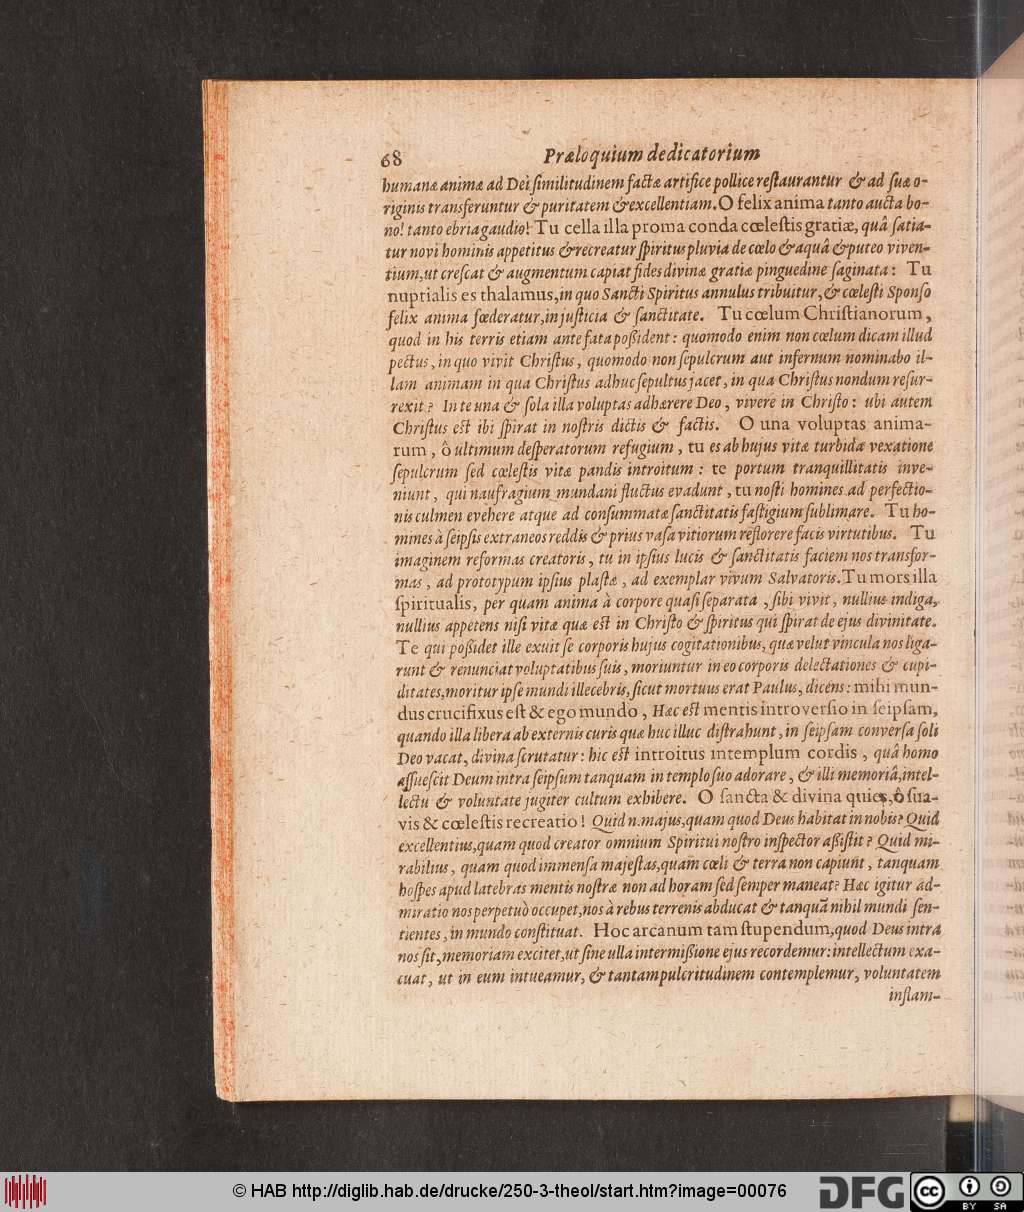 68 Præloquium dedicatorium
humanæ animæ ad Dei similitudinem factæ artifice pollice restaurantur & ad suæ o-
riginis transferuntur & puritatem & excellentiam. O felix anima tanto aucta bo-
no! tanto ebria gaudio! Tu cella illa proma conda cœlestis gratiæ, quâ satia-
tur novi hominis appetitus & recreatur spiritus pluvia de cœlo & aquâ è puteo viven-
tium, ut crescat & augmentum capiat fides divinæ gratiæ pinguedine saginata: Tu
nuptialis es thalamus, in quo Sancti Spiritus annulus tribuitur, & cœlesti Sponso
felix anima fœderatur, in justicia & sanctitate. Tu cœlum Christianorum,
quod in his terris etiam ante fata possident: quomodo enim non cœlum dicam illud
pectus, in quo vivit Christus, quomodo non sepulcrum aut infernum nominabo il-
lam animam in qua Christus adhuc sepultus jacet, in qua Christus nondum resur-
rexit? In te una & sola illa voluptas adhærere Deo, vivere in Christo: ubi autem
Christus est ibi spirat in nostris dictis & factis. O una voluptas anima-
rum, ô ultimum desperatorum refugium, tu es ab hujus vitæ turbidæ vexatione
sepulcrum sed cœlestis vitæ pandis introitum: te portum tranquillitatis inve-
niunt, qui naufragium mundani fluctus evadunt, tu nosti homines ad perfectio-
nis culmen evehere atque ad consummatæ sanctitatis fastigium sublimare. Tu ho-
mines à seipsis extraneos reddis & prius vasa vitiorum reflorere facis virtutibus. Tu
imaginem reformas creatoris, tu in ipsius lucis & sanctitatis faciem nos transfor-
mas, ad prototypum ipsius plastæ, ad exemplar vivum Salvatoris. Tu mors illa
spiritualis, per quam anima à corpore quasi separata, sibi vivit, nullius indiga,
nullius appetens nisi vitæ quæ est in Christo & spiritus qui spirat de ejus divinitate.
Te qui possidet ille exuit se corporis hujus cogitationibus, quæ velut vincula nos liga-
runt & renunciat voluptatibus suis, moriuntur in eo corporis delectationes & cupi-
ditates, moritur ipse mundi illecebris, sicut mortuus erat Paulus, dicens: mihi mun-
dus crucifixus est & ego mundo, Hæc est mentis introversio in seipsam,
quando illa libera ab externis curis quæ huc illuc distrahunt, in seipsam conversa soli
Deo vacat, divina scrutatur: hic est introitus in templum cordis, quâ homo
assuescit Deum intra seipsum tanquam in templo suo adorare, & illi memoriâ, intel-
lectu & voluntate jugiter cultum exhibere. O sancta & divina quies, ô sua-
vis & cœlestis recreatio! Quid n. majus, quam quod Deus habitat in nobis? Quid
excellentius, quam quod creator omnium Spiritui nostro inspector assistit? Quid mi-
rabilius, quam quod immensa majestas, quam cœli & terra non capiunt, tanquam
hospes apud latebras mentis nostræ non ad horam sed semper maneat? Hæc igitur ad-
miratio nos perpetuò occupet, nos à rebus terrenis abducat & tanquã nihil mundi sen-
tientes, in mundo constituat. Hoc arcanum tam stupendum, quod Deus intra
nos sit, memoriam excitet, ut sine ulla intermissione ejus recordemur: intellectum exa-
cuat, ut in eum intueamur, & tantam pulcritudinem contemplemur, voluntatem
inflam-
© HAB http://diglib.hab.de/drucke/250-3-theol/start.htm?image=00076
DFG
cc BY SA